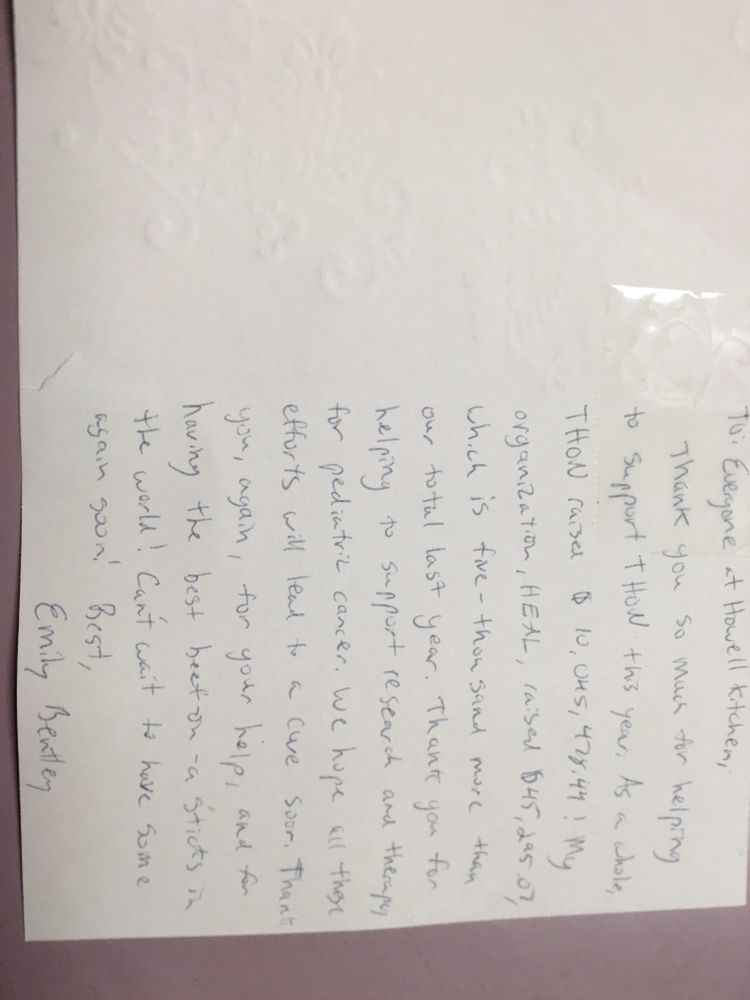 To: Everyone at Howell Kitchen,
Thank you so much for helping
to support THON this year. As a whole,
THON raised $10,045,478.44! My
organization, HEAL, raised $45,295.07,
which is five-thousand more than
our total last year. Thank you for
helping to support research and therapy
for pediatric cancer. We hope all these
efforts will lead to a cure soon. Thank
you, again, for your help, and for
having the best beef-on-a-sticks in
the world! Can't wait to have some
again soon! Best,
Emily Bentley